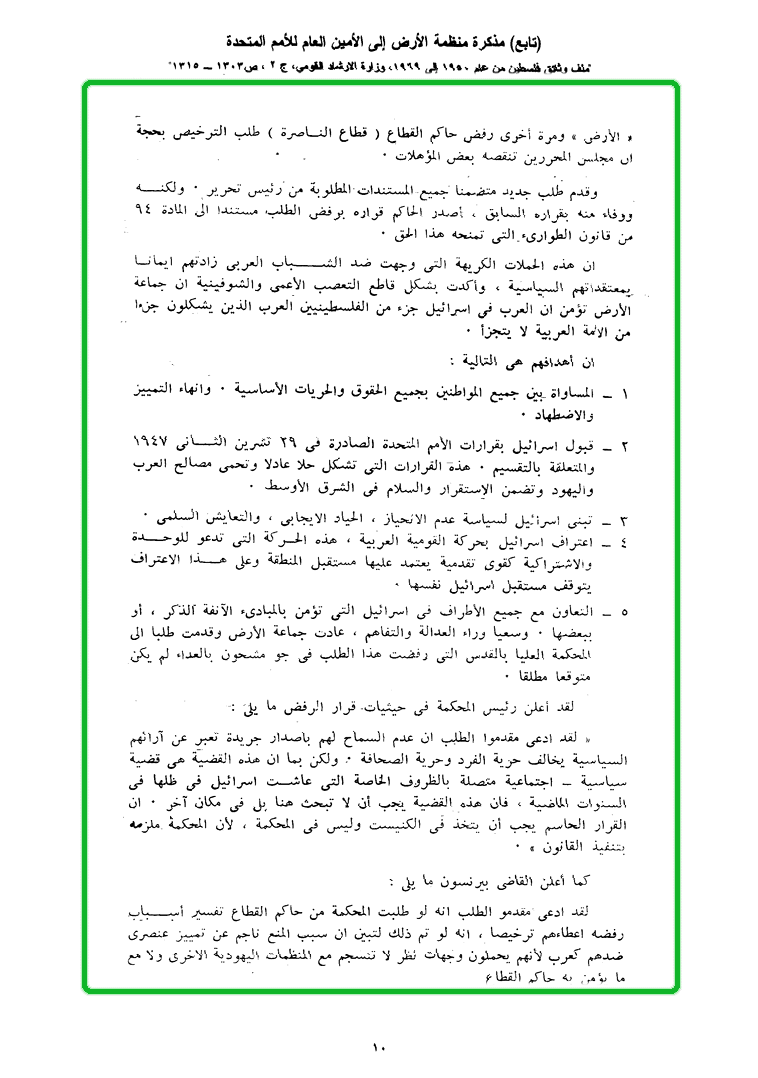 (تابع) مذكرة منظمة الأرض إلى الأمين العام للأمم المتحدة
"ملف وثائق فلسطين من عام ١٩٥٠ إلى ١٩٦٩، وزارة الارشاد القومي، ج ٢ ، ص١٣٠٣ – ١٣١٥"
« الأرض » ومرة أخرى رفض حاكم القطاع ( قطاع النـاصرة ) طلب الترخيص بحجة
ان مجلس المحررين تنقصه بعض المؤهلات ٠
وقدم طلب جديد متضمنا جميع المستندات المطلوبة من رئيس تحرير ٠ ولكنـــه
ووفاء منه بقراره السابق ، أصدر الحاكم قراره برفض الطلب مستندا الى المادة ٩٤
من قانون الطوارىء التى تمنحه هذا الحق ٠
ان هذه الحملات الكريهة التى وجهت ضد الشــــباب العربى زادتهم ايمانـا
بمعتقداتهم السياسية ، وأكدت بشكل قاطع التعصب الأعمى والشوفينية ان جماعة
الأرض تؤمن ان العرب فى اسرائيل جزء من الفلسطينيين العرب الذين يشكلون جزءا
من الأمة العربية لا يتجزأ ٠
ان أهدافهم هى التالية :
١ – المساواة بين جميع المواطنين بجميع الحقوق والحريات الأساسية ٠ وانهاء التمييز
والاضطهاد ٠
٢ – قبول اسرائيل بقرارات الأمم المتحدة الصادرة فى ٢٩ تشرين الثـــانى ١٩٤٧
والمتعلقة بالتقسيم ٠ هذه القرارات التى تشكل حلا عادلا وتحمى مصالح العرب
واليهود وتضمن الإستقرار والسلام فى الشرق الأوسط ٠
٣ – تبنى اسرائيل لسياسة عدم الانحياز ، الحياد الايجابى ، والتعايش السلمى ٠
٤ – اعتراف اسرائيل بحركة القومية العربية ، هذه الحـركة التى تدعو للوحـــدة
والاشتراكية كقوى تقدمية يعتمد عليها مستقبل المنطقة وعلى هـــذا الاعتراف
يتوقف مستقبل اسرائيل نفسها ٠
٥ – التعاون مع جميع الأطراف فى اسرائيل التى تؤمن بالمبادىء الآنفة الذكر ، أو
ببعضها ٠ وسعيا وراء العدالة والتفاهم ، عادت جماعة الأرض وقدمت طلبا الى
المحكمة العليا بالقدس التى رفضت هذا الطلب فى جو مشحون بالعداء لم يكن
متوقعا مطلقا ٠
لقد أعلن رئيس المحكمة فى حيثيات قرار الرفض ما يلى :
« لقد ادعى مقدموا الطلب ان عدم السماح لهم باصدار جريدة تعبر عن آرائهم
السياسية يخالف حرية الفرد وحرية الصحافة ٠ ولكن بما ان هذه القضية هى قضية
سياسية – اجتماعية متصلة بالظروف الخاصة التى عاشـت اسرائيل فى ظلها فى
السنوات الماضية ، فان هذه القضية يجب أن لا تبحث هنا بل فى مكان آخر ٠ ان
القرار الحاسم يجب أن يتخذ فى الكنيست وليس فى المحكمة ، لأن المحكمة ملزمه
بتنفيذ القانون » ٠
كما أعلن القاضى بيرنسون ما يلى :
لقد ادعى مقدمو الطلب انه لو طلبت المحكمة من حاكم القطاع تفسير أســـباب
رفضه اعطاءهم ترخيصا ، انه لو تم ذلك لتبين ان سبب المنع ناجم عن تمييز عنصرى
ضدهم كعرب لأنهم يحملون وجهات نظر لا تنسجم مع المنظمات اليهودية الاخرى ولا مع
ما يؤمن به حاكم القطاع
١٠